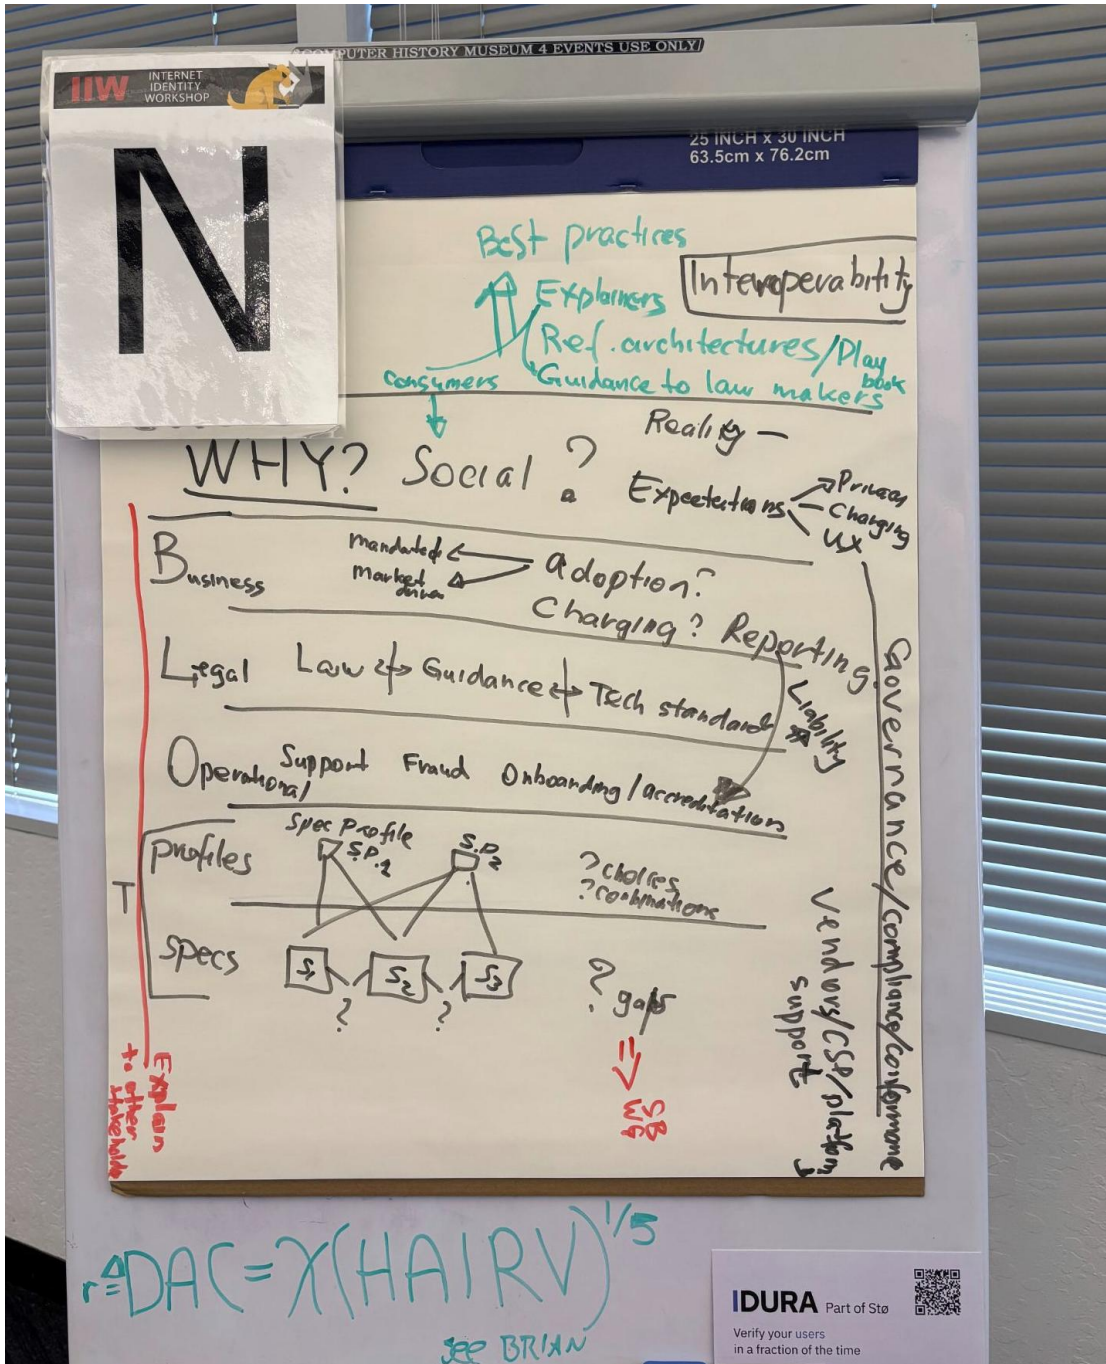 COMPUTER HISTORY MUSEUM 4 EVENTS USE ONLY
IIW
INTERNET
IDENTITY
WORKSHOP
N
25 INCH x 30 INCH
63.5cm x 76.2cm
Best practices
Interoperability
Explainers
Ref. architectures/Play
book
Guidance to law makers
consumers
WHY? Social ?
Reality —
Expectations
Privacy
Charging
UX
Business
mandated
Market
driven
adoption?
Charging? Reporting
Legal
Law Guidance Tech standards
Liability
Operational
Support Fraud Onboarding/accreditation
profiles
Spec Profile
S.P.1
S.P.2
? choices
? combinations
T
specs
S1
S2
S3
?
?
? gaps
SB
WG
Explain
to other
stakeholds
Governance/compliance/conformance
Vendors/CSP/platform
support
r≜DAC=X(HAIRV)^1/5
see BRIAN
IDURA Part of Stø
Verify your users
in a fraction of the time